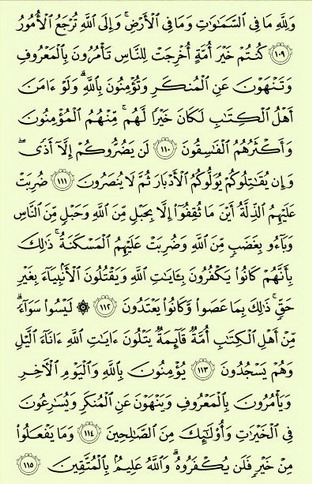 وَلِلَّهِ مَا فِى ٱلسَّمَٰوَٰتِ وَمَا فِى ٱلْأَرْضِ ۚ وَإِلَى ٱللَّهِ تُرْجَعُ ٱلْأُمُورُ
١٠٩ كُنتُمْ خَيْرَ أُمَّةٍ أُخْرِجَتْ لِلنَّاسِ تَأْمُرُونَ بِٱلْمَعْرُوفِ
وَتَنْهَوْنَ عَنِ ٱلْمُنكَرِ وَتُؤْمِنُونَ بِٱللَّهِ ۗ وَلَوْ ءَامَنَ
أَهْلُ ٱلْكِتَٰبِ لَكَانَ خَيْرًا لَّهُم ۚ مِّنْهُمُ ٱلْمُؤْمِنُونَ
وَأَكْثَرُهُمُ ٱلْفَٰسِقُونَ ١١٠ لَن يَضُرُّوكُمْ إِلَّآ أَذًى ۖ
وَإِن يُقَٰتِلُوكُمْ يُوَلُّوكُمُ ٱلْأَدْبَارَ ثُمَّ لَا يُنصَرُونَ ١١١ ضُرِبَتْ
عَلَيْهِمُ ٱلذِّلَّةُ أَيْنَ مَا ثُقِفُوٓا۟ إِلَّا بِحَبْلٍ مِّنَ ٱللَّهِ وَحَبْلٍ مِّنَ ٱلنَّاسِ
وَبَآءُو بِغَضَبٍ مِّنَ ٱللَّهِ وَضُرِبَتْ عَلَيْهِمُ ٱلْمَسْكَنَةُ ۚ ذَٰلِكَ
بِأَنَّهُمْ كَانُوا۟ يَكْفُرُونَ بِـَٔايَٰتِ ٱللَّهِ وَيَقْتُلُونَ ٱلْأَنۢبِيَآءَ بِغَيْرِ
حَقٍّ ۚ ذَٰلِكَ بِمَا عَصَوا۟ وَّكَانُوا۟ يَعْتَدُونَ ١١٢ ۞ لَيْسُوا۟ سَوَآءً ۗ
مِّنْ أَهْلِ ٱلْكِتَٰبِ أُمَّةٌ قَآئِمَةٌ يَتْلُونَ ءَايَٰتِ ٱللَّهِ ءَانَآءَ ٱلَّيْلِ
وَهُمْ يَسْجُدُونَ ١١٣ يُؤْمِنُونَ بِٱللَّهِ وَٱلْيَوْمِ ٱلْءَاخِرِ
وَيَأْمُرُونَ بِٱلْمَعْرُوفِ وَيَنْهَوْنَ عَنِ ٱلْمُنكَرِ وَيُسَٰرِعُونَ
فِى ٱلْخَيْرَٰتِ وَأُو۟لَٰٓئِكَ مِنَ ٱلصَّٰلِحِينَ ١١٤ وَمَا يَفْعَلُوا۟
مِنْ خَيْرٍ فَلَن يُكْفَرُوهُ ۗ وَٱللَّهُ عَلِيمٌۢ بِٱلْمُتَّقِينَ ١١٥